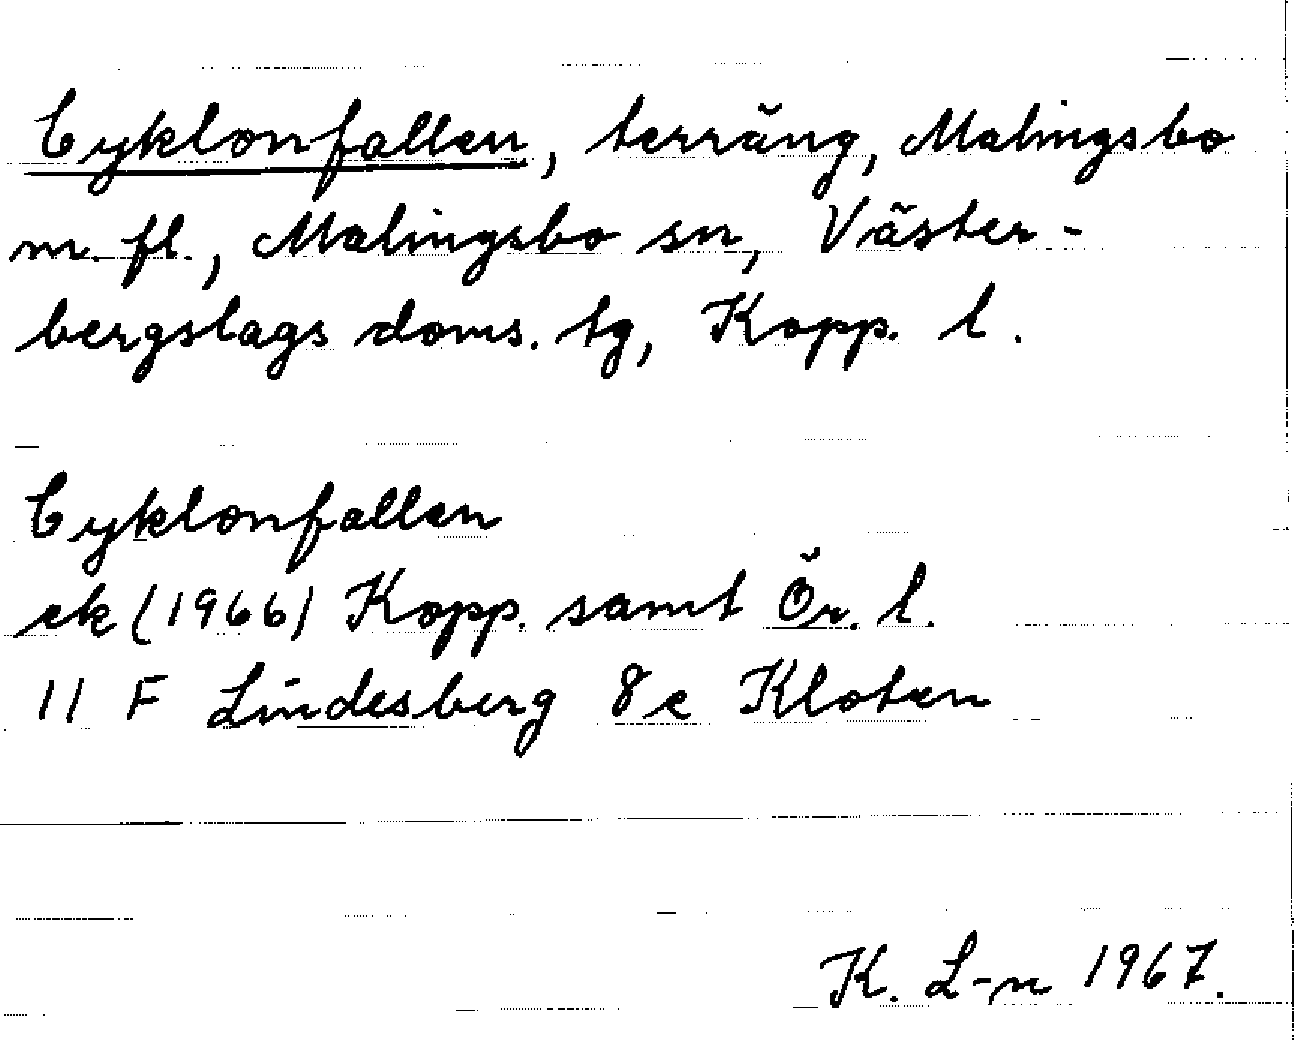 Cyklonfallen, terräng, Malingsbo
m. fl., Malingsbo sn, Väster-
bergslags doms. tg, Kopp. l.
Cyklonfallen
ek (1966) Kopp. samt Ör. l.
11 F Lindesberg 8e Kloten
K. L-n 1967.